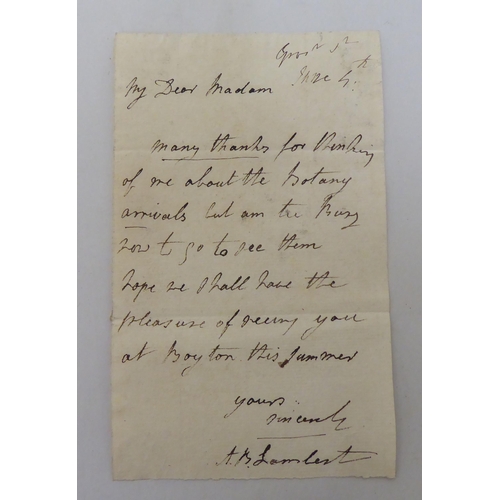 Grosr St
June 4th
My Dear Madam
many thanks for thinking
of me about the Botany
arrivals but am too Busy
now to go to see them
hope we shall have the
pleasure of seeing you
at Boyton this summer
yours
sincerely
A.B. Lambert